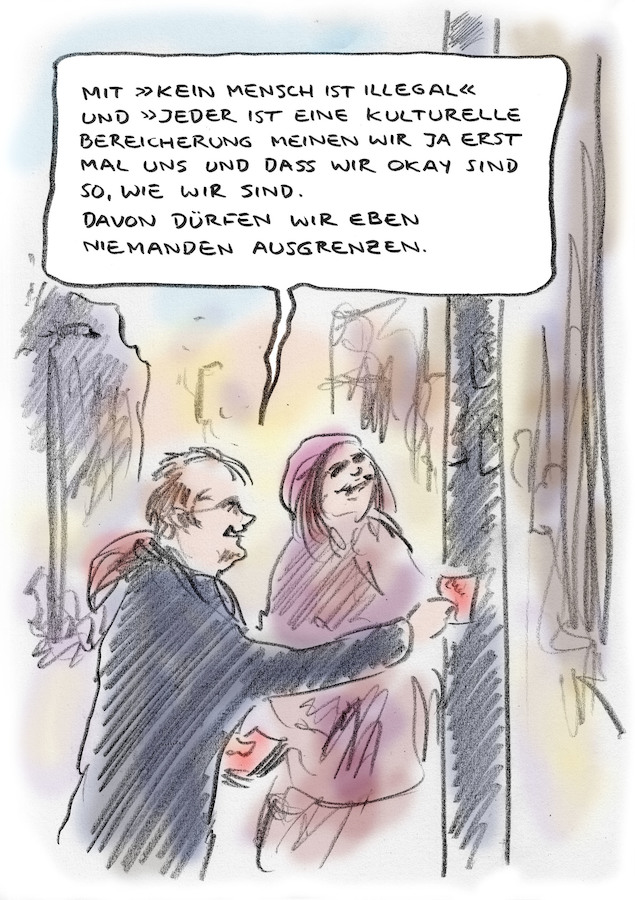 MIT »KEIN MENSCH IST ILLEGAL«
UND »JEDER IST EINE KULTURELLE
BEREICHERUNG MEINEN WIR JA ERST
MAL UNS UND DASS WIR OKAY SIND
SO, WIE WIR SIND.
DAVON DÜRFEN WIR EBEN
NIEMANDEN AUSGRENZEN.